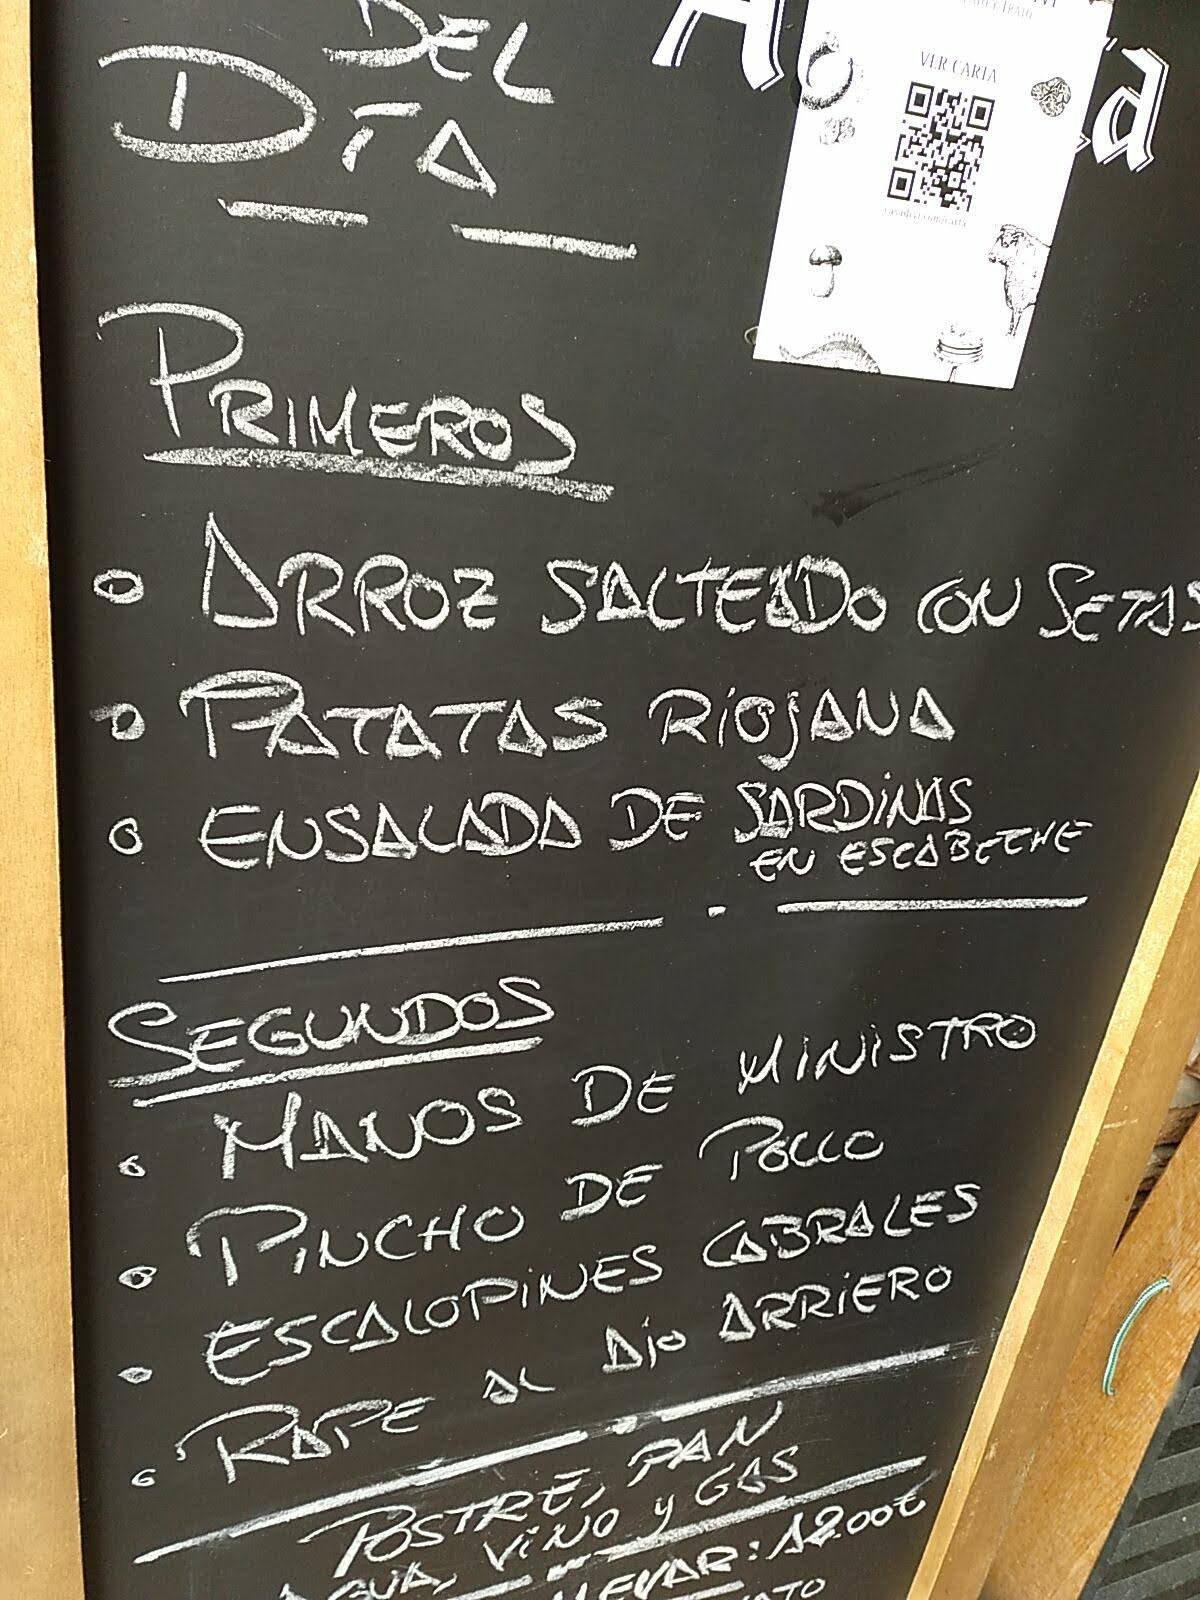 DEL
DÍA
VER CARTA
PRIMEROS
ARROZ SALTEADO CON SETAS
PATATAS RIOJANA
ENSALADA DE SARDINAS
EN ESCABECHE
SEGUNDOS
MANOS DE MINISTRO
PINCHO DE POLLO
ESCALOPINES CABRALES
RAPE AL AJO ARRIERO
POSTRE, PAN
AGUA, VINO y GAS
LLEVAR: 12.00€